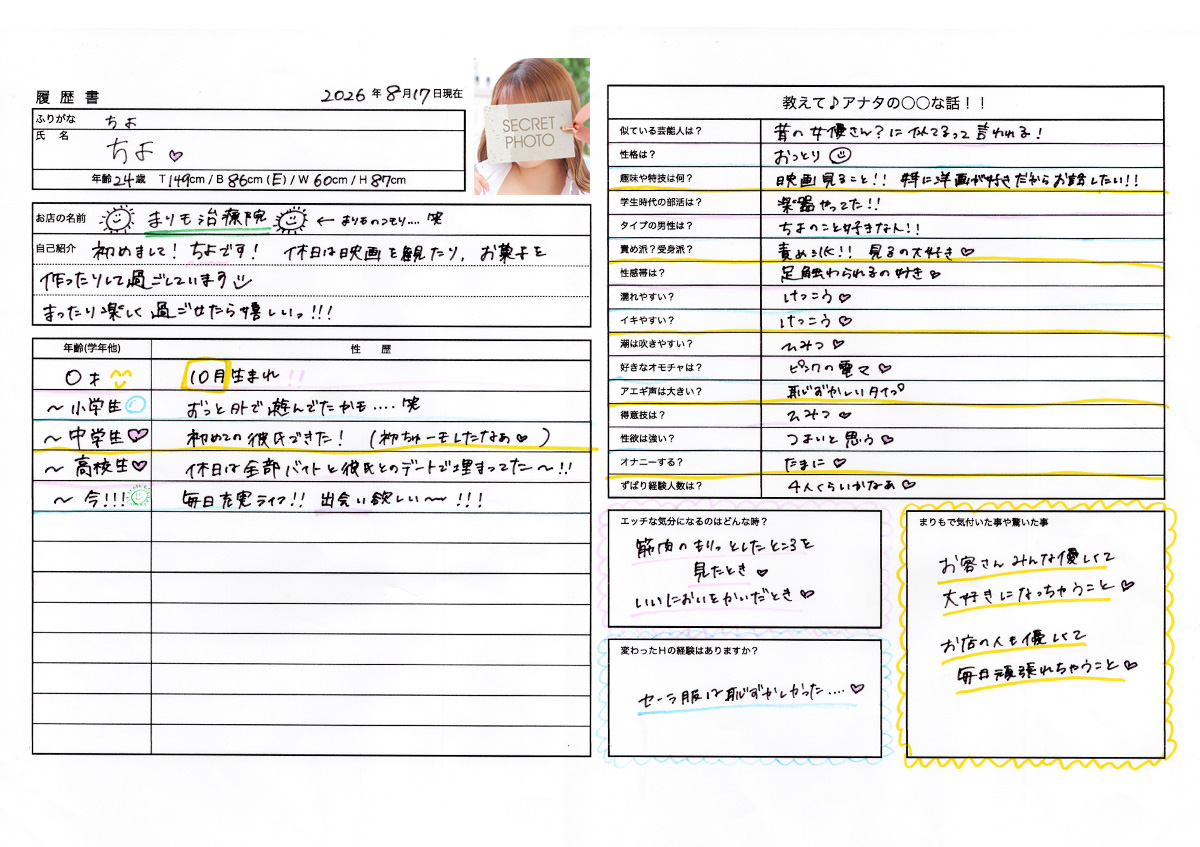 履歴書
2026年8月17日現在
ふりがな ちよ
氏名 ちよ♡
年齢24歳 T149cm / B86cm (E) / W60cm / H87cm
SECRET
PHOTO
お店の名前 まりも治療院 ← まりものつもり.... 笑
自己紹介 初めまして! ちよです! 休日は映画を観たり、お菓子を
作ったりして過ごしています
まったり楽しく過ごせたら嬉しいっ!!!
年齢(学年他) 性歴
0才 10月生まれ!!
～小学生 ずっと外で遊んでたかも.... 笑
～中学生♡ 初めての彼氏できた! (初ちゅーもしたなあ♡)
～高校生♡ 休日は全部バイトと彼氏とのデートで埋まってた～!!
～今!!! 毎日充実ライフ!! 出会い欲しい～!!!
教えて♪アナタの○○な話!!
似ている芸能人は? 昔の女優さん?に似てるって言われる!
性格は? おっとり
趣味や特技は何? 映画見ること!! 特に洋画が好きだからお話したい!!
学生時代の部活は? 楽器やってた!!
タイプの男性は? ちよのこと好きな人!!
責め派?受身派? 責め派!! 見るの大好き♡
性感帯は? 足触わられるの好き♡
濡れやすい? けっこう♡
イキやすい? けっこう♡
潮は吹きやすい? ひみつ♡
好きなオモチャは? ピンクの電マ♡
アエギ声は大きい? 恥ずかしいタイプ
得意技は? ひみつ♡
性欲は強い? つよいと思う♡
オナニーする? たまに♡
ずばり経験人数は? 4人くらいかなあ♡
エッチな気分になるのはどんな時?
筋肉のもりっとしたところを
見たとき♡
いいにおいをかいだとき♡
変わったHの経験はありますか?
セーラ服は恥ずかしかった....♡
まりもで気付いた事や驚いた事
お客さんみんな優しくて
大好きになっちゃうこと♡
お店の人も優しくて
毎日頑張れちゃうこと♡